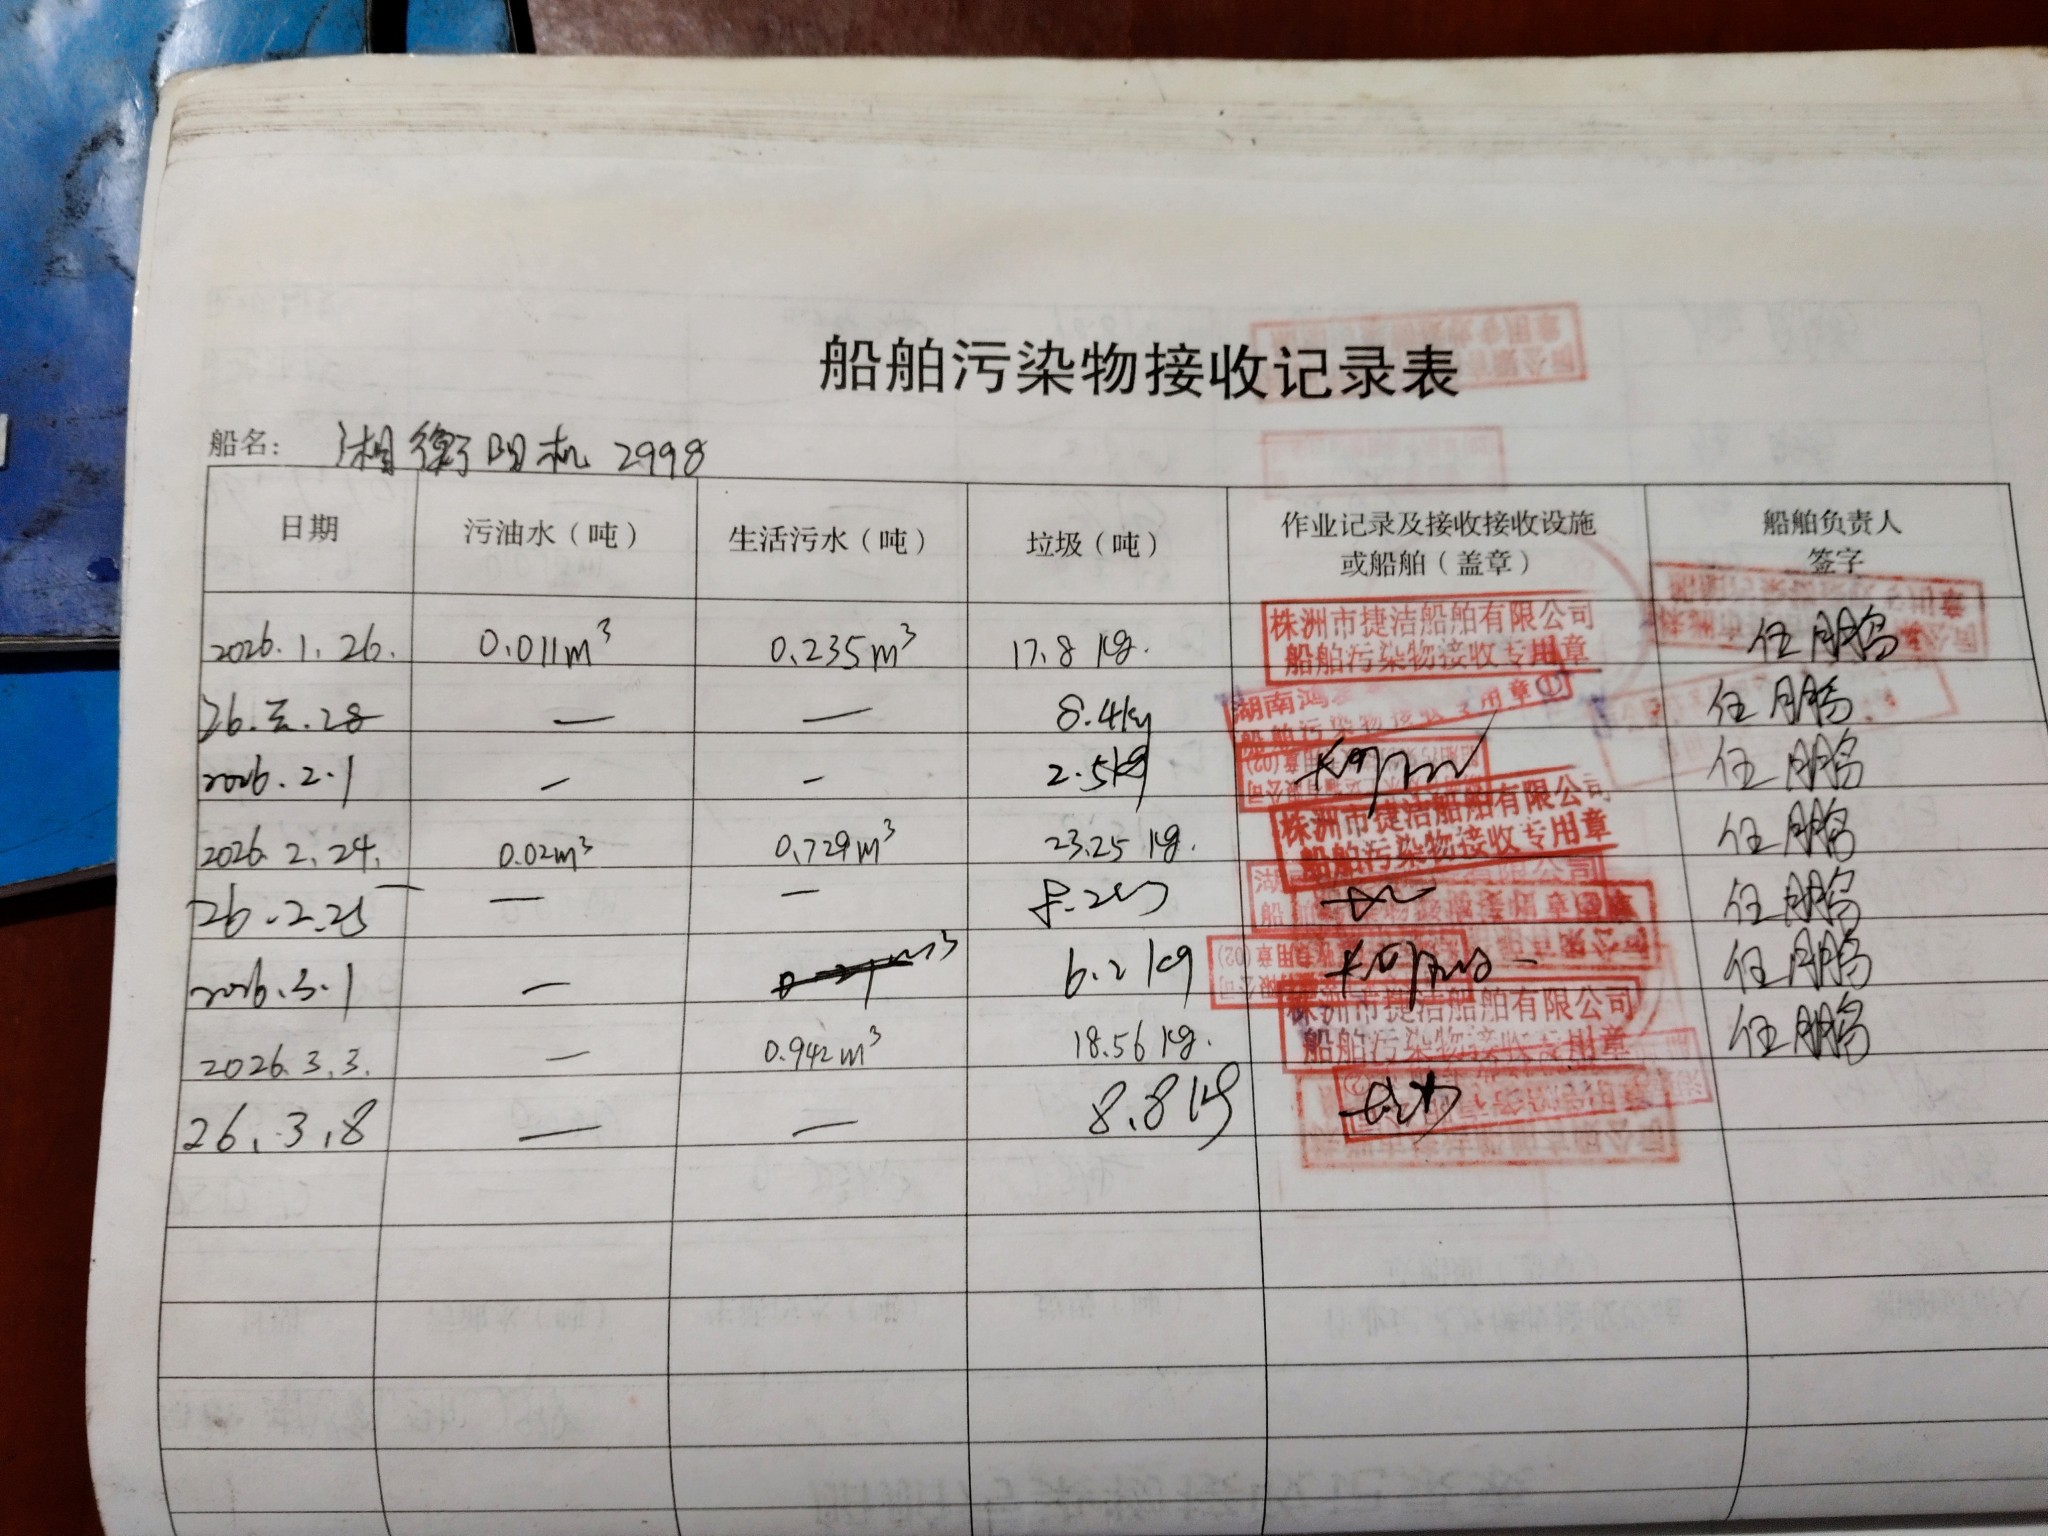 船舶污染物接收记录表
船名： 湘衡阳机 2998
日期 污油水（吨） 生活污水（吨） 垃圾（吨） 作业记录及接收接收设施或船舶（盖章） 船舶负责人签字
2026.1.26. 0.011m³ 0.235m³ 17.8 kg. 株洲市捷洁船舶有限公司 任鹏
船舶污染物接收专用章
26. .28 — — 8.4kg 湖南鸿 任鹏
船舶污染物接收专用章①
2026.2.1 — — 2.5kg 任鹏
2026.2.24. 0.02m³ 0.729m³ 23.25 kg. 株洲市捷洁船舶有限公司 任鹏
船舶污染物接收专用章
26.2.25 — — 任鹏
2026.3.1 — 6.2kg 任鹏
2026.3.3. — 0.942m³ 18.56 kg. 株洲市捷洁船舶有限公司 任鹏
船舶污染物接收专用章
26.3.8 — — 8.8kg